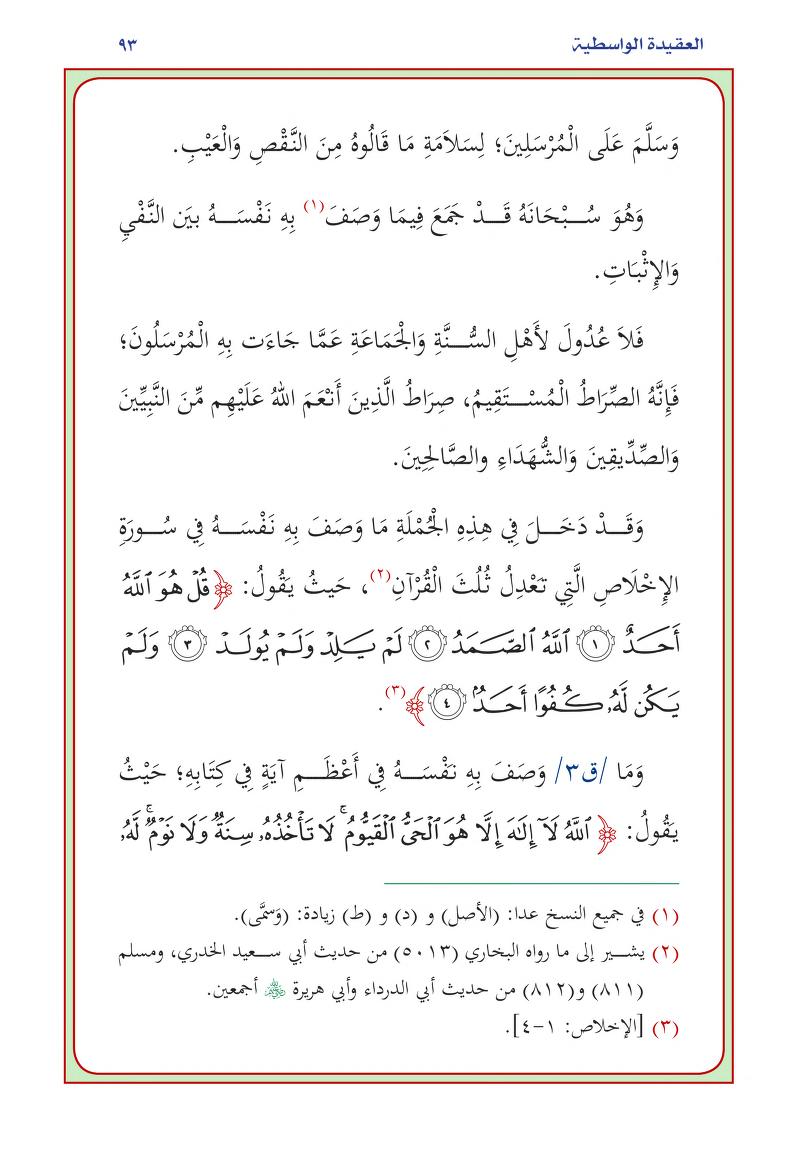 العقيدة الواسطية ٩٣
وَسَلَّمَ عَلَى الْمُرْسَلِينَ؛ لِسَلاَمَةِ مَا قَالُوهُ مِنَ النَّقْصِ وَالْعَيْبِ.
وَهُوَ سُبْحَانَهُ قَدْ جَمَعَ فِيمَا وَصَفَ(١) بِهِ نَفْسَهُ بيَن النَّفْيِ
وَالإِثْبَاتِ.
فَلاَ عُدُولَ لأَهْلِ السُّنَّةِ وَالْجَمَاعَةِ عَمَّا جَاءَت بِهِ الْمُرْسَلُونَ؛
فَإِنَّهُ الصِّرَاطُ الْمُسْتَقِيمُ، صِرَاطُ الَّذِينَ أَنْعَمَ اللهُ عَلَيْهِم مِّنَ النَّبِيِّينَ
وَالصِّدِّيقِينَ وَالشُّهَدَاءِ والصَّالِحِينَ.
وَقَدْ دَخَلَ فِي هِذِهِ الْجُمْلَةِ مَا وَصَفَ بِهِ نَفْسَهُ فِي سُورَةِ
الإِخْلَاصِ الَّتِي تَعْدِلُ ثُلُثَ الْقُرْآنِ(٢)، حَيثُ يَقُولُ: ﴿قُلْ هُوَ ٱللَّهُ
أَحَدٌ ١ ٱللَّهُ ٱلصَّمَدُ ٢ لَمْ يَلِدْ وَلَمْ يُولَدْ ٣ وَلَمْ
يَكُن لَّهُۥ كُفُوًا أَحَدُۢ ٤﴾(٣).
وَمَا /ق٣/ وَصَفَ بِهِ نَفْسَهُ فِي أَعْظَمِ آيَةٍ فِي كِتَابِهِ؛ حَيْثُ
يَقُولُ: ﴿ٱللَّهُ لَآ إِلَٰهَ إِلَّا هُوَ ٱلْحَىُّ ٱلْقَيُّومُ ۚ لَا تَأْخُذُهُۥ سِنَةٌ وَلَا نَوْمٌ ۚ لَّهُۥ
(١) في جميع النسخ عدا: (الأصل) و (د) و (ط) زيادة: (وَسمَّى).
(٢) يشير إلى ما رواه البخاري (٥٠١٣) من حديث أبي سعيد الخدري، ومسلم
(٨١١) و(٨١٢) من حديث أبي الدرداء وأبي هريرة ﵃ أجمعين.
(٣) [الإخلاص: ١-٤].